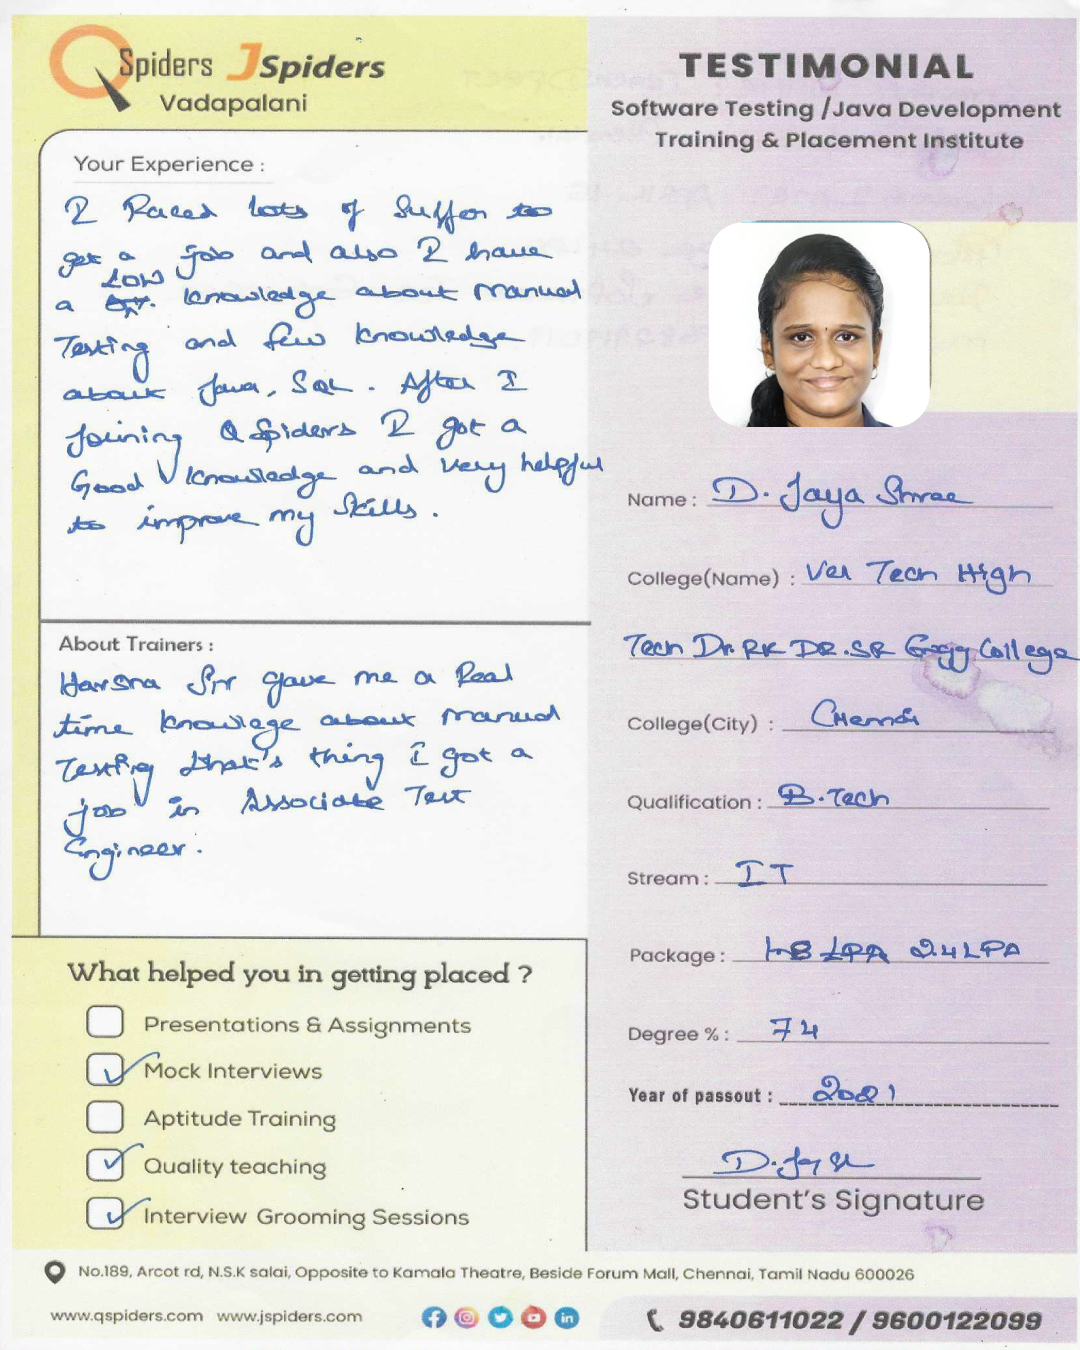 QSpiders JSpiders
Vadapalani
TESTIMONIAL
Software Testing /Java Development
Training & Placement Institute
Your Experience :
I Raced lots of Suffer to
get a job and also I have
a low knowledge about manual
Testing and few knowledge
about Java, SQL. After I
Joining QSpiders I got a
Good knowledge and very helpful
to improve my Skills.
About Trainers :
Harsha Sir gave me a Real
time knowlage about manual
Testing that's thing I got a
job in Associate Test
Engineer.
What helped you in getting placed ?
Presentations & Assignments
Mock Interviews
Aptitude Training
Quality teaching
Interview Grooming Sessions
Name : D. Jaya Shree
College(Name) : Vel Tech High
Tech Dr. RR DR. SR Engg College
College(City) : Chennai
Qualification : B.Tech
Stream : IT
Package : 2.4 LPA
Degree % : 74
Year of passout : 2021
D. Jay Sh
Student's Signature
No.189, Arcot rd, N.S.K salai, Opposite to Kamala Theatre, Beside Forum Mall, Chennai, Tamil Nadu 600026
www.qspiders.com www.jspiders.com
9840611022 / 9600122099